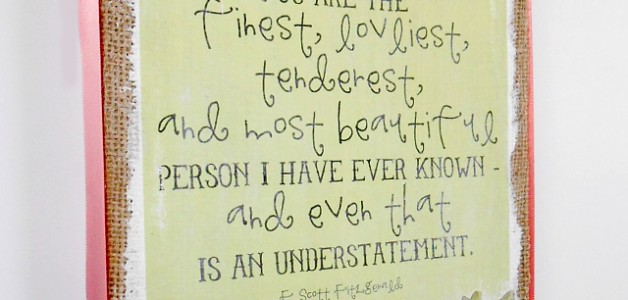 YOU ARE THE
finest, lovliest,
tenderest,
and most beautiful
PERSON I HAVE EVER KNOWN -
and even that
IS AN UNDERSTATEMENT.
F. Scott Fitzgerald